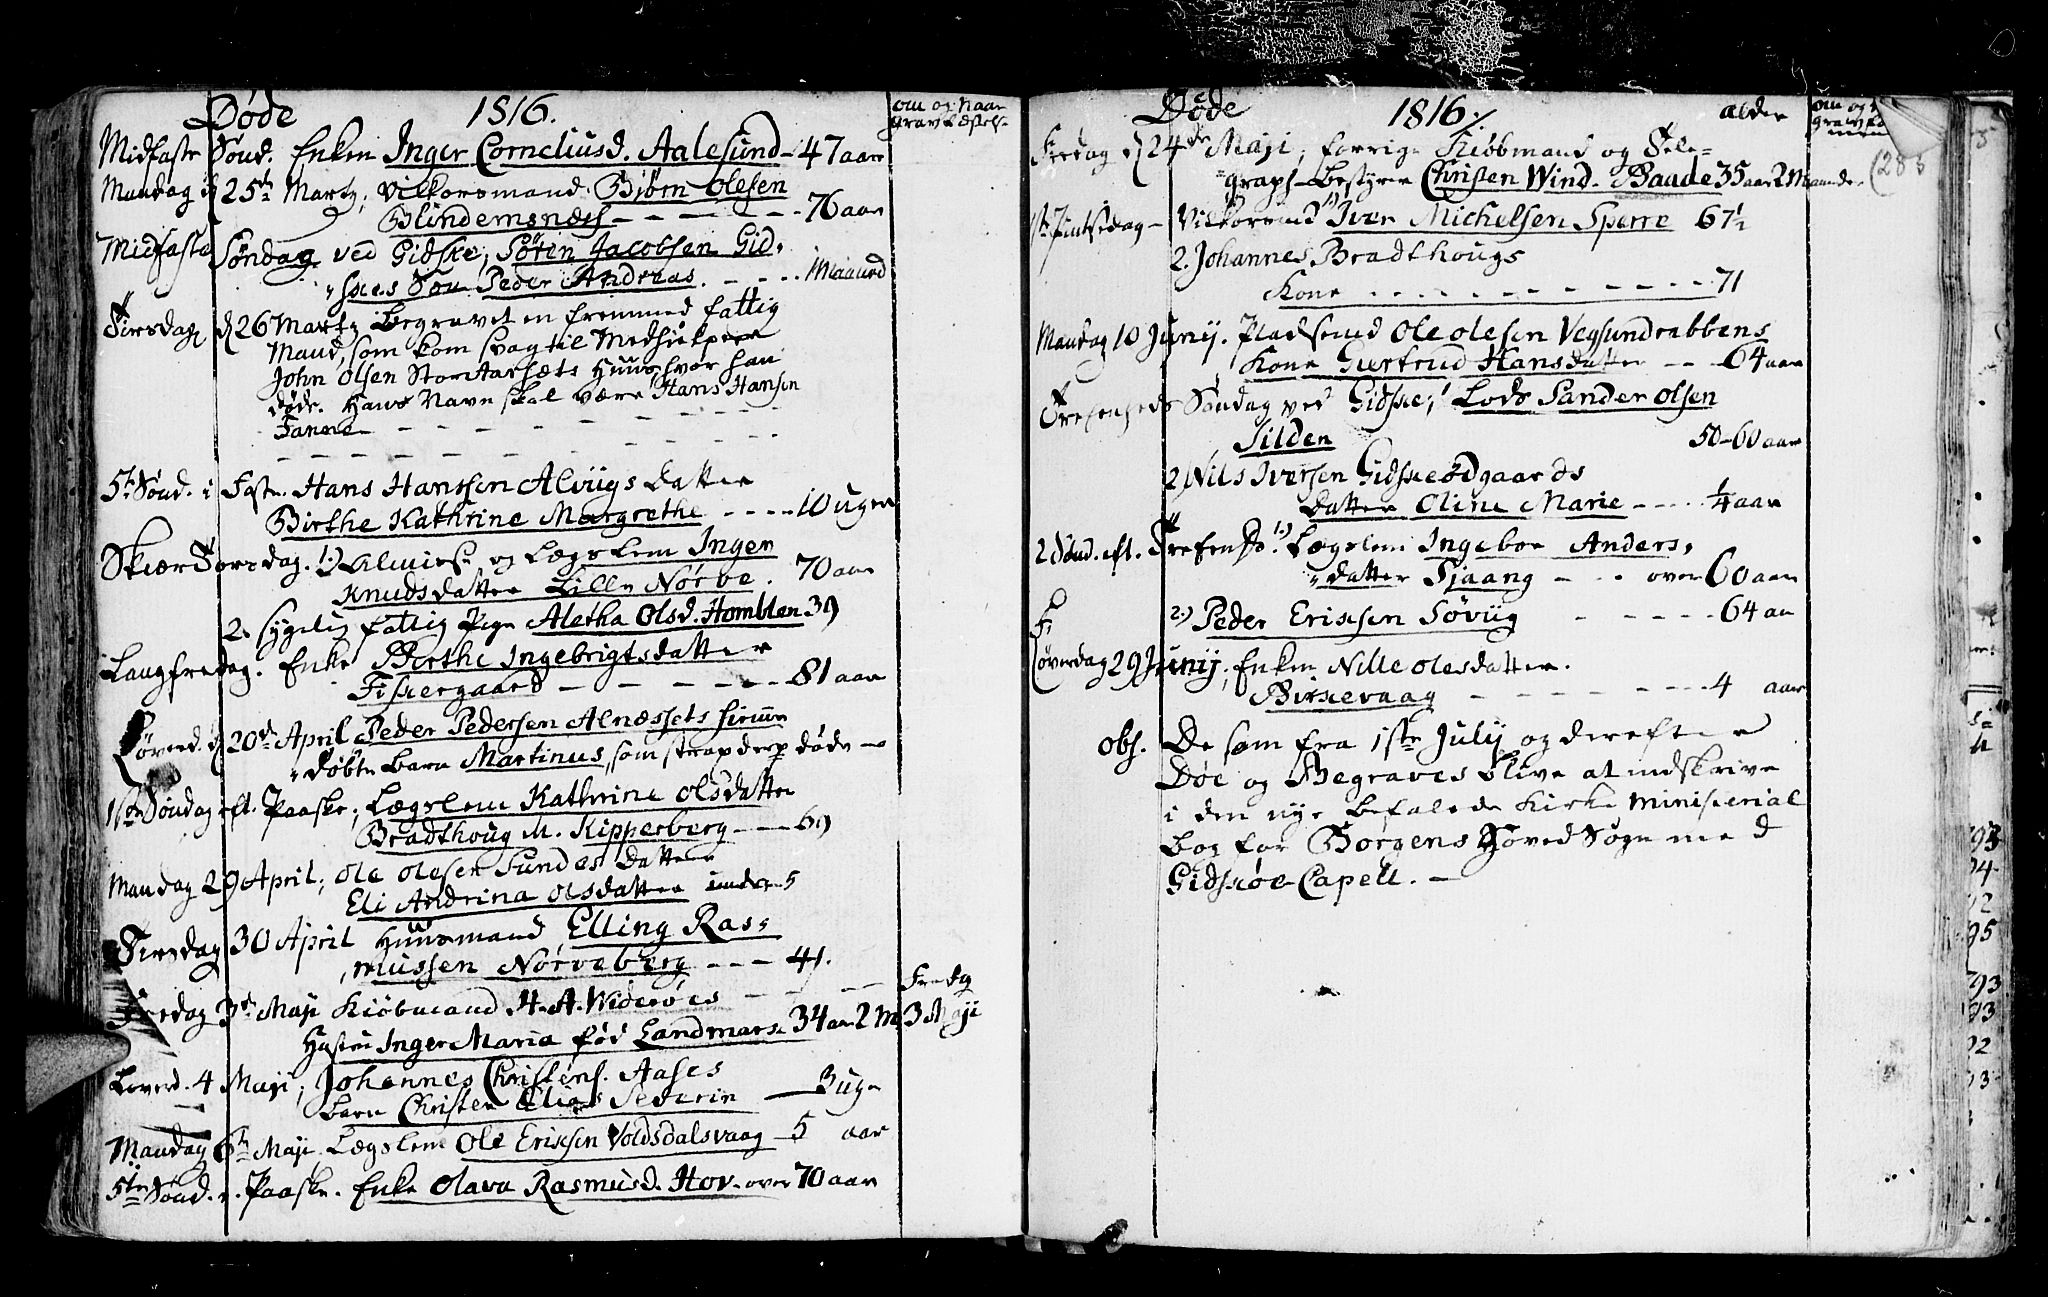 Døde 1816. om og naar
gravfæstet
Midfaste Sønd. Enken Inger Corneliusd. Aalesund - 47 aar
Mandag d 25de Martz, Vilkorsmand Bjørn Olesen
Blindemsnæss - - - - - 76 aar
Midfaste Søndag ved Gidske, Søren Jacobsen Gid,
skes Søn Peder Andreas. - - - - 1 Maaned
Tirsdag d 26 Martz Begravet en fremmed fattig
Mand, som kom svag til Medhjelper
John Olsen Stor Aarsæts Huus, hvor han
døde. Hans Navn skal være Hans Hansen
Fanne - - - - - -
5te Sønd. i Faste. Hans Hanssen Alviigs datter
Birthe Kathrine Margrethe - - - - 10 uger
Skiær Torsdag. 1.) Almiss og Lægslem Inger
Knudsdatter Lille Nørve. 70 aar
2. sygelig fattig Pige Aletha Olsd. Homblen 39
Langfredag. Enke Berthe Ingebrigtsdatter
Fiskergaard - - - - - - 81 aar
Løverd. d 20de April Peder Pedersen Alnæssets hiem
døbte Barn Martinus, som strax derp døde -
1ste Søndag eft. Paaske, Lægslem Kathrine Olsdatter
Bradthoug M. Kipperberg - - 69
Mandag 29 April, Ole Olesen Sundes Datter
Eli Andrina Olsdatter under 5
Tirsdag 30 April Huusmand Elling Ras,
mussen Nørveberg - - - 41.
Fredag 3de Maji Kiøbmand H. A. Widerøes - - - Fredg
Hustru Inger Maria fød Landmark 34 aar 2 M. 3 Maji
Løverd. 4 Maji, Johannes Christens. Aases
barn Christen Elias Severin - 3 uge
Mandag 6te Maji. Lægslem Ole Ericksen Voldsdalsvaag - 5 aar
5te Sønd. e. Paaske. Enke Olava Rasmusd. Hov. over 70 aar
Døde 1816. alder om og
Fredag d 24de Maji, forrige Kiøbmand og Tele=
graph-Bestyrer Christen Wind. Baade 35 aar 2 Maaneder (283
1ste Pintsedag - Vilkormd 1) Iver Michelsen Sperre 67½
2. Johannes Bradthougs
Kone . . - - - - - - 71
Mandag 10 Junij. Pladsemd Ole Olesen Vegsundrabbens
Kone Gertrud Hansdatter - - - 64 aar
Trefenheds Søndag ved Gidske, 1 Lods Sander Olsen
Silden 50-60 aar
2) Nils Iversen Gidskeødgaards
datter Oline Marie - - - - ¼ aar
2 Sønd. eft. Trefensh. 1.) Lægslem Ingebor Anders,
datter Sjaang - - - over 60 aar
2.) Peder Ericksen Søviig - - - - - 64 aa
Løverdag 29 Junij, Enken Nille Olesdatter.
Birkevaag - - - - - - - 4 aar
obs. De som fra 1ste Julij og derefter
Døe og Begraves blive at indskrive
i den nye befalede Kirke Ministerial
Bog for Borgens Hoved Sogn med
Gidskøe Capell. -